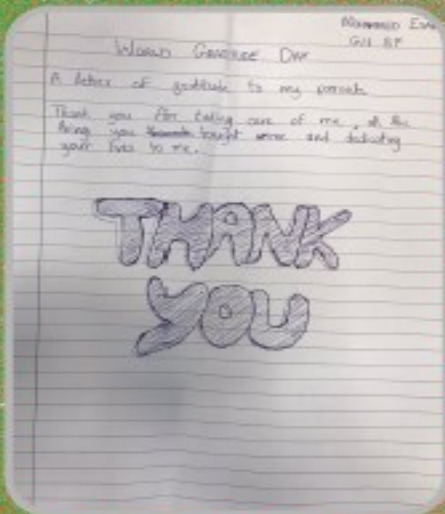 Mohammed
World Gratitude Day
A letter of gratitude to my parents
Thank you for taking care of me, all the
things you bought me and dedicating
your lives to me.
THANK
YOU